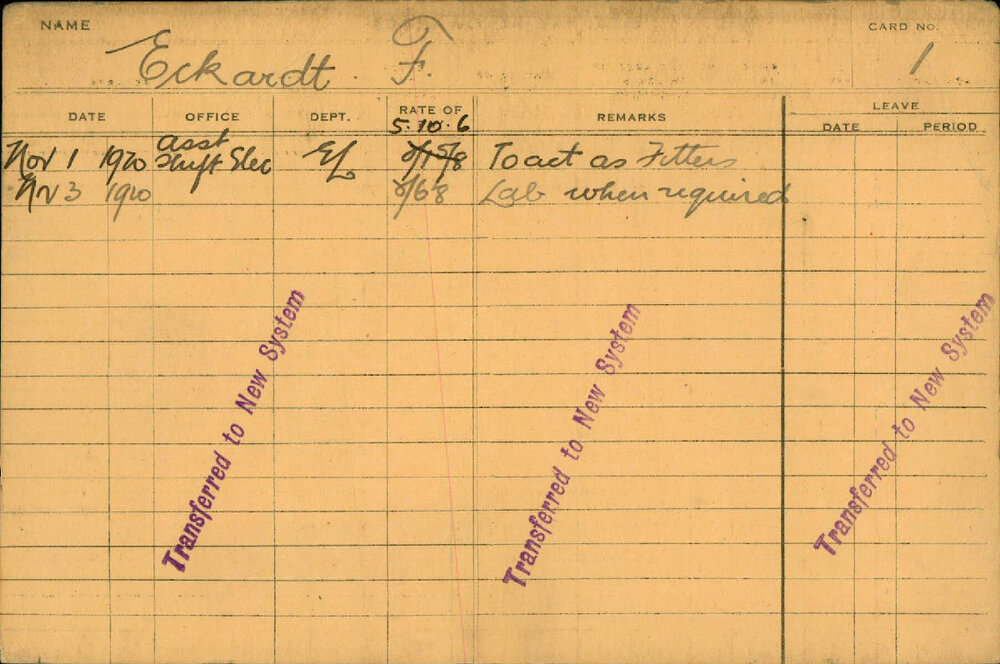 NAME Eckardt F. CARD NO. 1
DATE OFFICE DEPT. RATE OF REMARKS LEAVE
DATE PERIOD
5.10.6
Nov 1 1920 Asst Shift Elec EL To act as Fitters
Nov 3 1920 Lab when required
Transferred to New System
Transferred to New System
Transferred to New System